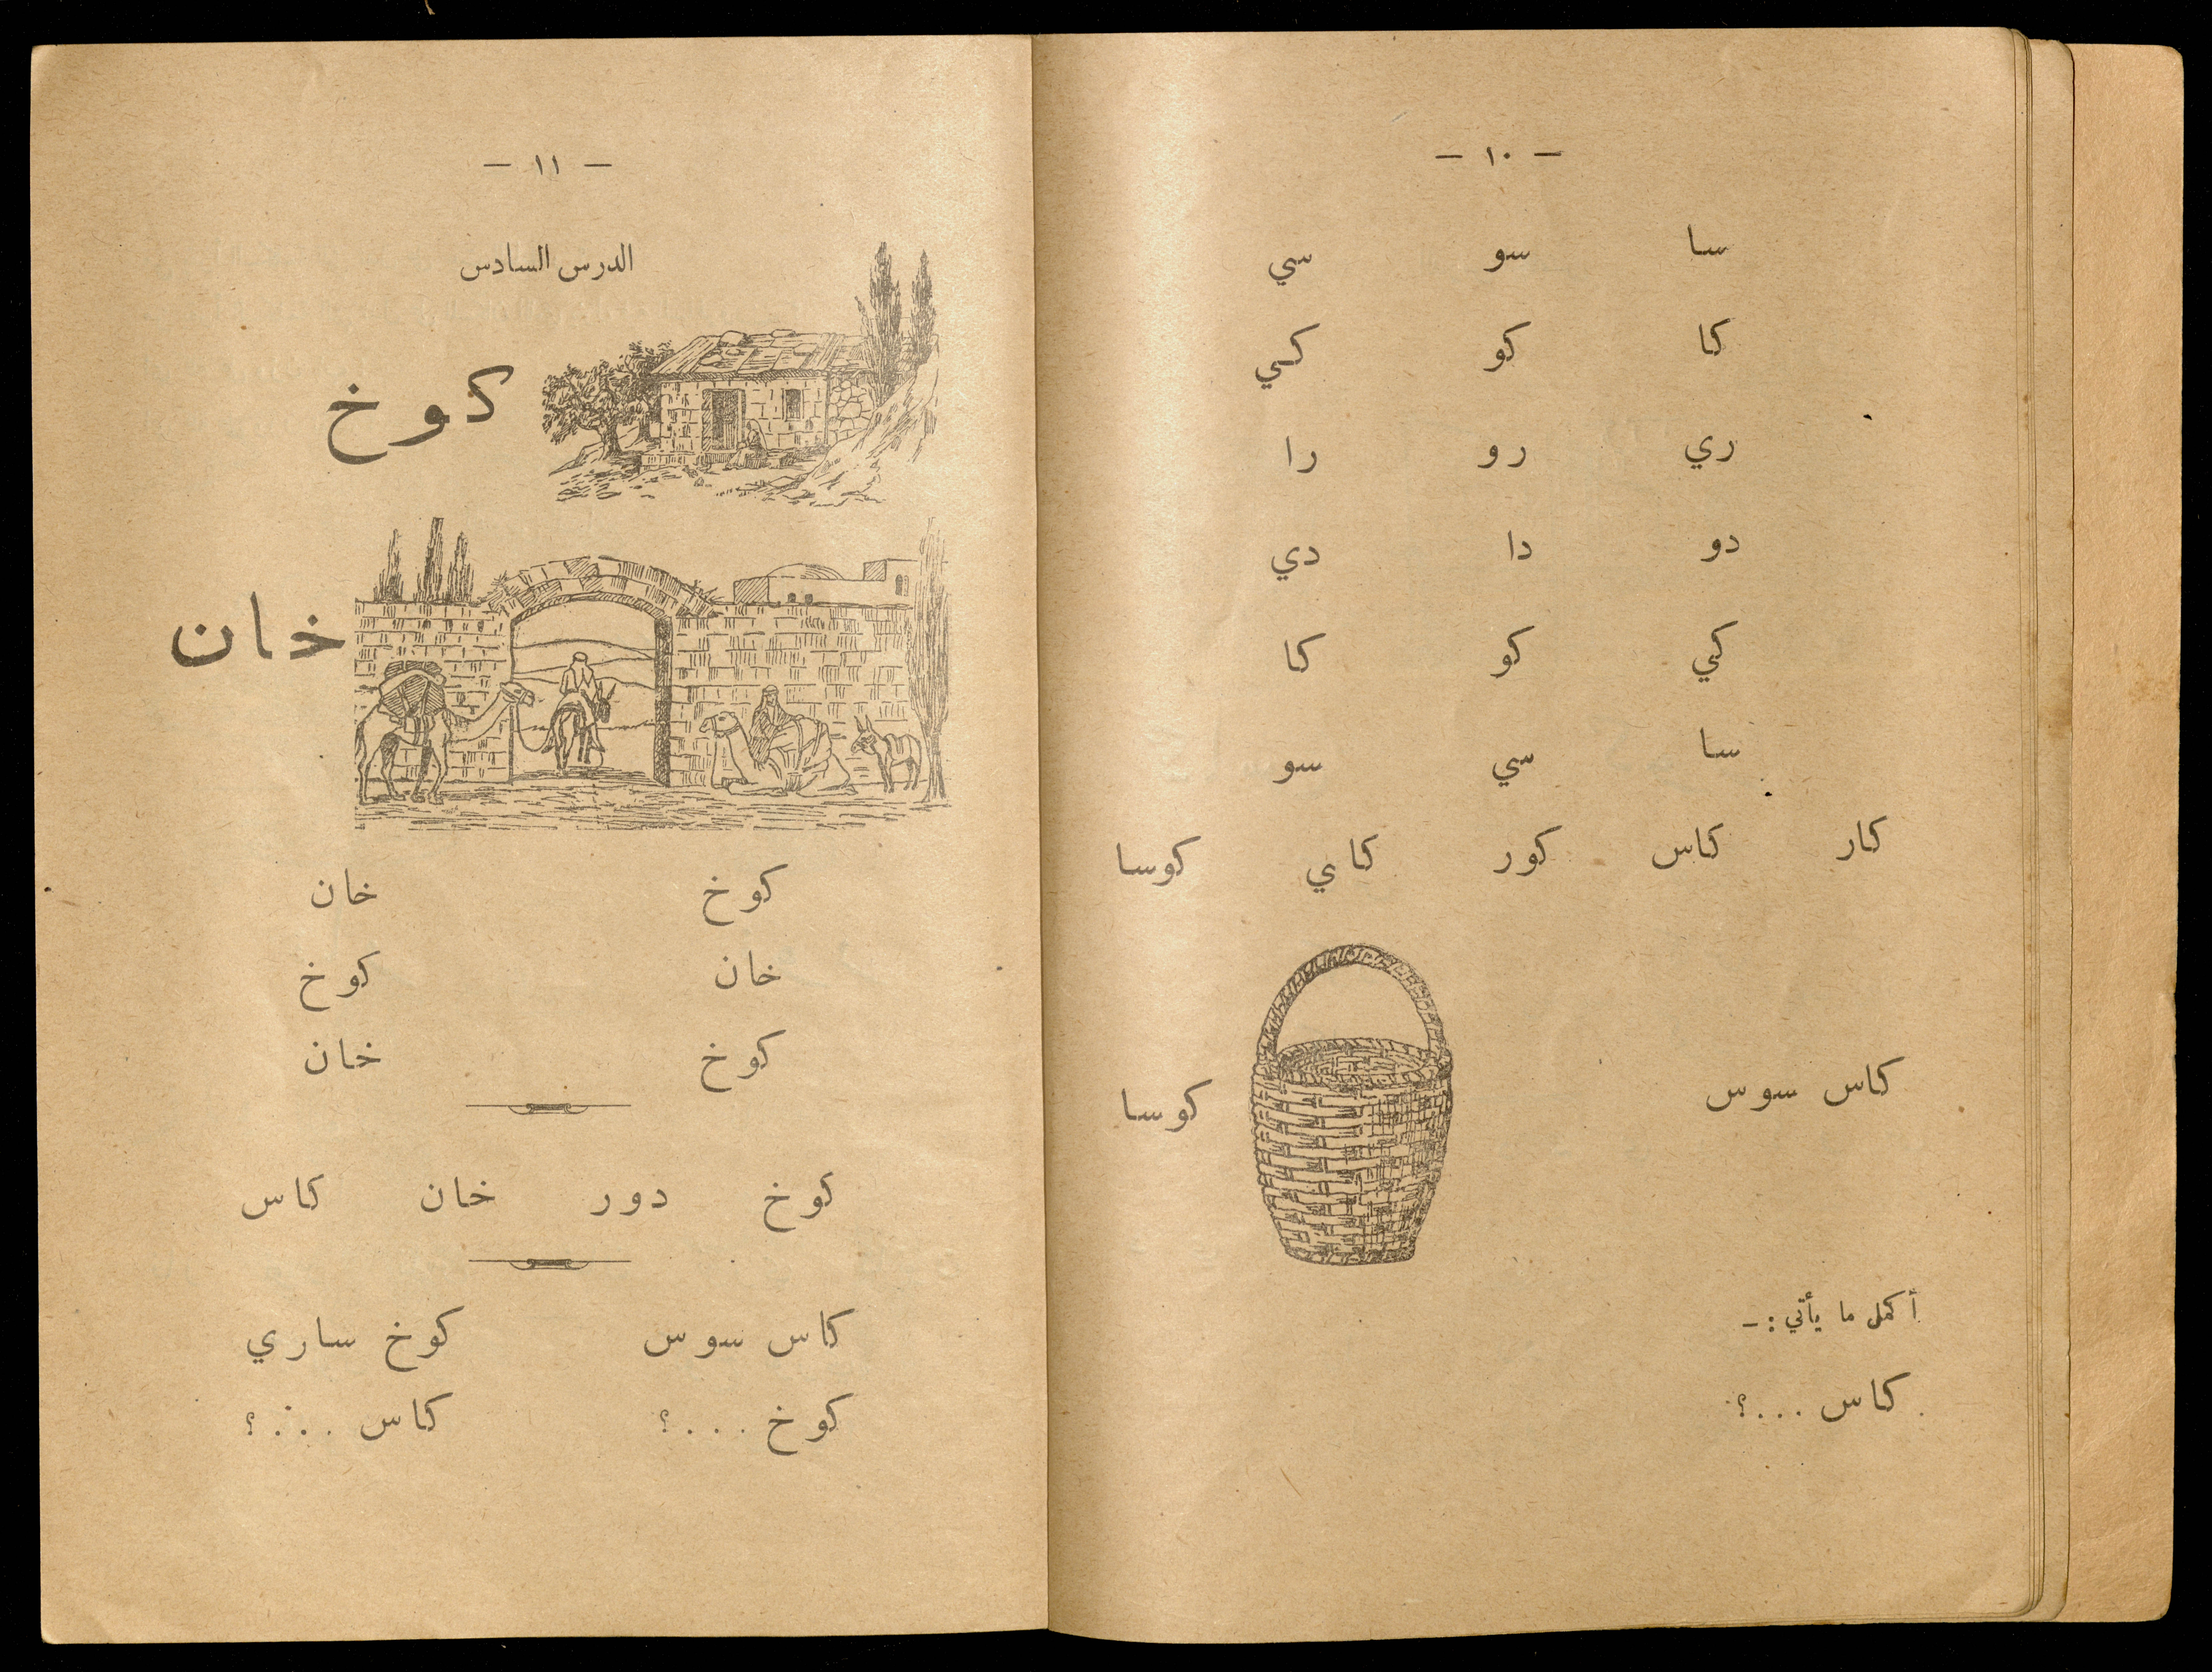 — ١٠ —
سا سو سي
كا كو كي
ري رو را
دو دا دي
كي كو كا
سا سي سو
كار كاس كور كاي كوسا
كاس سوس كوسا
أكمل ما يأتي :ـ
كاس ...؟
— ١١ —
الدرس السادس
كوخ
خان
كوخ خان
خان كوخ
كوخ خان
كوخ دور خان كاس
كاس سوس كوخ ساري
كوخ ...؟ كاس ...؟